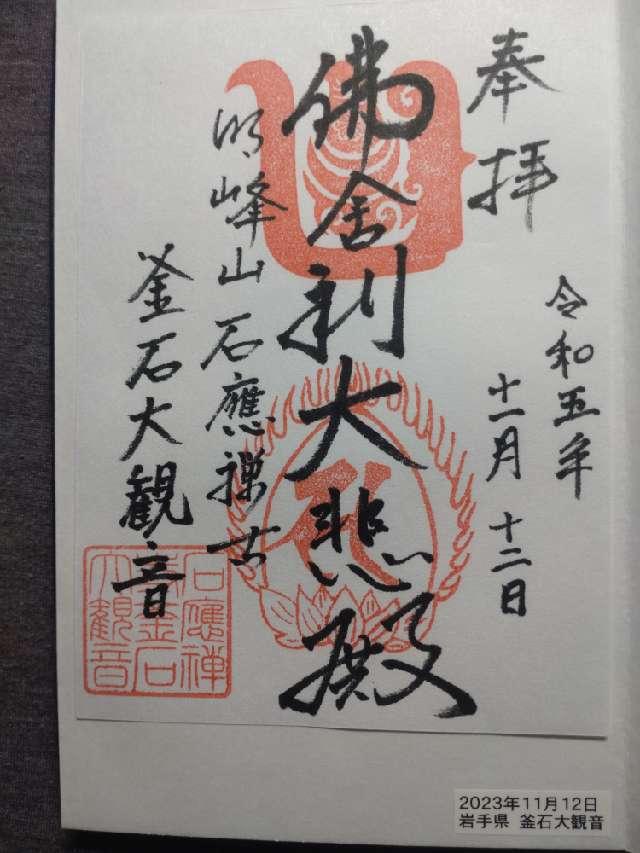 奉拝
令和五年
十一月十二日
佛舎利大悲殿
明峰山石應禅寺
釜石大観音
石應禅
寺釜石
大観音
2023年11月12日
岩手県 釜石大観音